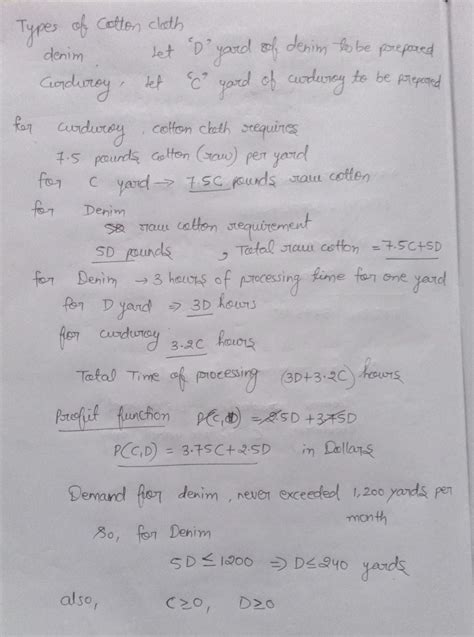 Types of Cotton cloth
denim. Let "D" yard of denim to be prepared
Corduroy. let "C" yard of curduroy to be prepared
for curduroy, cotton cloth requires
7.5 pounds cotton (raw) per yard
for C yard → 7.5C pounds raw cotton
for Denim
raw cotton requirement
5D pounds, Total raw cotton = 7.5C+5D
for Denim → 3 hours of processing time for one yard
for D yard ⇒ 3D hours
for curduroy 3.2C hours
Total Time of processing (3D+3.2C) hours
Profit function P(C,D) = 2.5D + 3.75D
P(C,D) = 3.75C+2.5D in Dollars
Demand for denim, never exceeded 1,200 yards per
month
So, for Denim
5D ≤ 1200 ⇒ D ≤ 240 yards
also, C ≥ 0, D ≥ 0